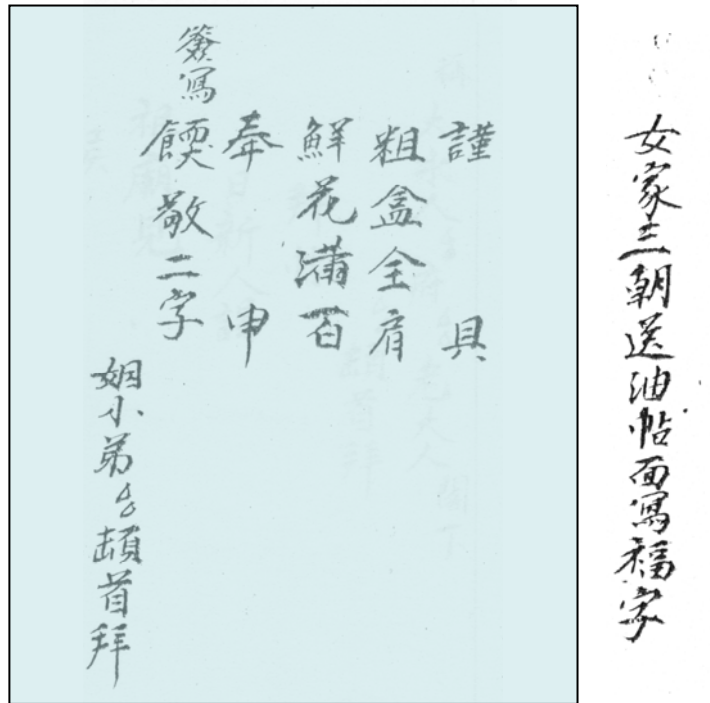 女家三朝送油帖面寫福字
謹具
粗盒全肩
鮮花滿百
奉申
簽寫
餪敬二字
姻小弟厶厶頓首拜